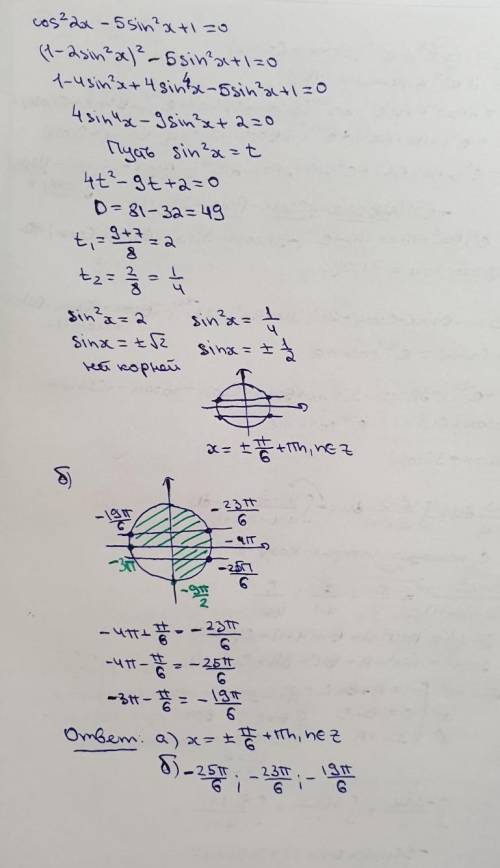 cos²2x - 5sin²x + 1 = 0
(1 - 2sin²x)² - 5sin²x + 1 = 0
1 - 4sin²x + 4sin⁴x - 5sin²x + 1 = 0
4sin⁴x - 9sin²x + 2 = 0
Пусть sin²x = t
4t² - 9t + 2 = 0
D = 81 - 32 = 49
t₁ = (9+7)/8 = 2
t₂ = 2/8 = 1/4
sin²x = 2 sin²x = 1/4
sinx = ±√2 sinx = ± 1/2
нет корней
x = ± π/6 + πn, n∈z
б)
-19π/6 -23π/6
-3π -4π
-25π/6
-9π/2
-4π + π/6 = -23π/6
-4π - π/6 = -25π/6
-3π - π/6 = -19π/6
Ответ: а) x = ± π/6 + πn, n∈z
б) -25π/6; -23π/6; -19π/6